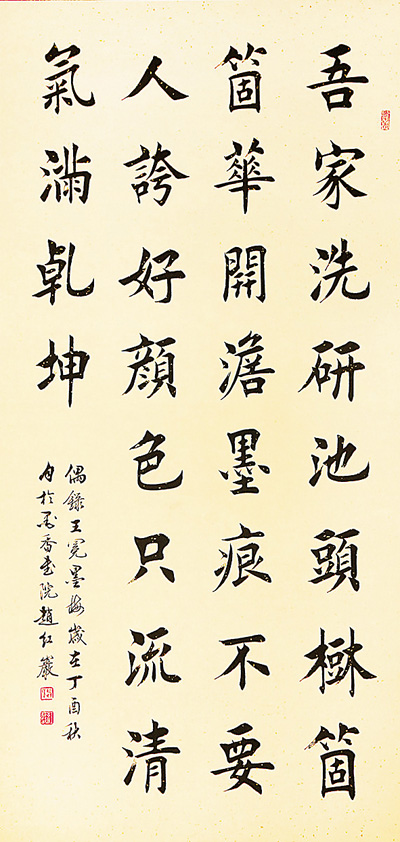 吾家洗研池頭樹箇
箇華開澹墨痕不要
人誇好顔色只流清
氣滿乾坤
偶錄王冕墨梅歲在丁酉秋
月於香院趙紅巖